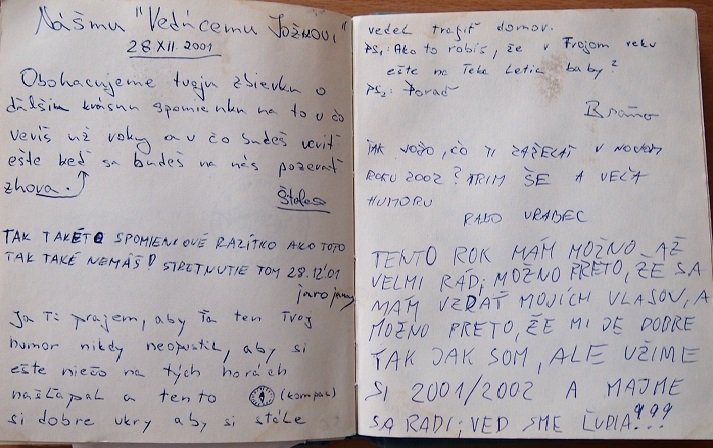 Nášmu "Vedúcemu Jožkovi"
28 XII. 2001
Obohacujeme tvoju zbierku o
ďalšiu krásnu spomienku na to v čo
veríš už roky a v čo budeš veriť
ešte keď sa budeš na nás pozerať
zhora.
TAK TAKÉTO SPOMIENKOVÉ RAZÍTKO AKO TOTO
TAK TAKÉ NEMÁŠ! STRETNUTIE TOM 28.12'01
jaro
Ja Ti prajem, aby Ťa ten Tvoj
humor nikdy neopustil, aby si
ešte niečo na tých horách
našľapal a tento (kompas)
si dobre ukry aby si stále
vedel trafiť domov.
PS1: Ako to robíš, že v Tvojom veku
ešte na Teba letia baby?
PS2: Poraď
Braňo
TAK JOŽO, ČO TI ZAŽELAŤ V NOVOM
ROKU 2002? A VEĽA
HUMORU
RAĎO VRABEC
TENTO ROK MÁM MOŽNO AŽ
VELMI RÁD; MOŽNO PRETO, ŽE SA
MÁM VZDAŤ MOJICH VLASOV, A
MOŽNO PRETO, ŽE MI JE DOBRE
TAK JAK SOM, ALE UŽIME
SI 2001/2002 A MAJME
SA RADI; VEĎ SME ĽUDIA!!!